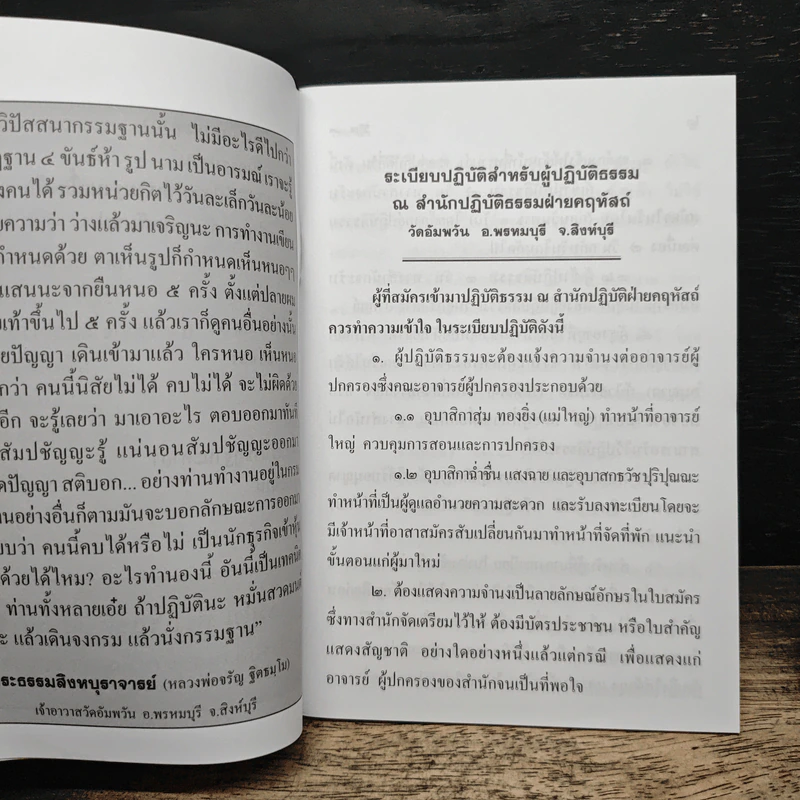 วิปัสสนากรรมฐานนั้น ไม่มีอะไรดีไปกว่า
ฐาน ๔ ขันธ์ห้า รูป นาม เป็นอารมณ์ เราจะรู้
คนได้ รวมหน่วยกิตไว้วันละเล็กวันละน้อย
ความว่า ว่างแล้วมาเจริญนะ การทำงานเขียน
กำหนดด้วย ตาเห็นรูปก็กำหนดเห็นหนอๆ
แสนนะจากยืนหนอ ๕ ครั้ง ตั้งแต่ปลายผม
เท้าขึ้นไป ๕ ครั้ง แล้วเราก็ดูคนอื่นอย่างนั้น
ปัญญา เดินเข้ามาแล้ว ใครหนอ เห็นหนอ
กว่า คนนี้นิสัยไม่ได้ คบไม่ได้ จะไม่ผิดด้วย
อีก จะรู้เลยว่า มาเอาอะไร ตอบออกมาทันที
สัมปชัญญะรู้ แน่นอนสัมปชัญญะออกมา
ปัญญา สติบอก... อย่างท่านทำงานอยู่ในกรม
อย่างอื่นก็ตามมันจะบอกลักษณะการออกมา
ว่า คนนี้คบได้หรือไม่ เป็นนักธุรกิจเข้าหุ้น
ด้วยได้ไหม? อะไรทำนองนี้ อันนี้เป็นเทคนิค
ท่านทั้งหลายเอ๋ย ถ้าปฏิบัตินะ หมั่นสวดมนต์
แล้วเดินจงกรม แล้วนั่งกรรมฐาน”
ระธรรมสิงหบุราจารย์ (หลวงพ่อจรัญ ฐิตธมฺโม)
เจ้าอาวาสวัดอัมพวัน อ.พรหมบุรี จ.สิงห์บุรี
ระเบียบปฏิบัติสำหรับผู้ปฏิบัติธรรม
ณ สำนักปฏิบัติธรรมฝ่ายคฤหัสถ์
วัดอัมพวัน อ.พรหมบุรี จ.สิงห์บุรี
ผู้ที่สมัครเข้ามาปฏิบัติธรรม ณ สำนักปฏิบัติฝ่ายคฤหัสถ์
ควรทำความเข้าใจ ในระเบียบปฏิบัติดังนี้
๑. ผู้ปฏิบัติธรรมจะต้องแจ้งความจำนงต่ออาจารย์ผู้
ปกครองซึ่งคณะอาจารย์ผู้ปกครองประกอบด้วย
๑.๑ อุบาสิกาสุ่ม ทองยิ่ง (แม่ใหญ่) ทำหน้าที่อาจารย์
ใหญ่ ควบคุมการสอนและการปกครอง
๑.๒ อุบาสิกาฉ่ำชื่น แสงฉาย และอุบาสกธวัช ปุริปุณณะ
ทำหน้าที่เป็นผู้ดูแลอำนวยความสะดวก และรับลงทะเบียนโดยจะ
มีเจ้าหน้าที่อาสาสมัครสับเปลี่ยนกันมาทำหน้าที่จัดที่พัก แนะนำ
ขั้นตอนแก่ผู้มาใหม่
๒. ต้องแสดงความจำนงเป็นลายลักษณ์อักษรในใบสมัคร
ซึ่งทางสำนักจัดเตรียมไว้ให้ ต้องมีบัตรประชาชน หรือใบสำคัญ
แสดงสัญชาติ อย่างใดอย่างหนึ่งแล้วแต่กรณี เพื่อแสดงแก่
อาจารย์ ผู้ปกครองของสำนักจนเป็นที่พอใจ